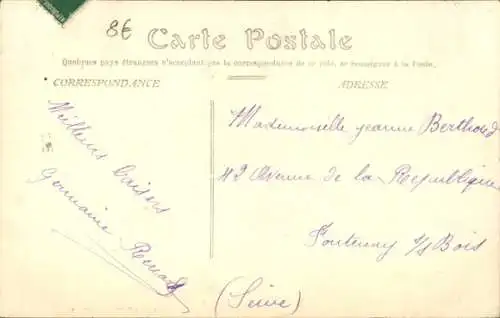 8€
Carte Postale
Quelques pays étrangers n'acceptent pas la correspondance de ce côté, se renseigner à la Poste.
CORRESPONDANCE
ADRESSE
Meilleurs baisers
Germaine Renard
Mademoiselle Jeanne Berthoud
42 Avenue de la République
Fontenay s/s Bois
(Seine)